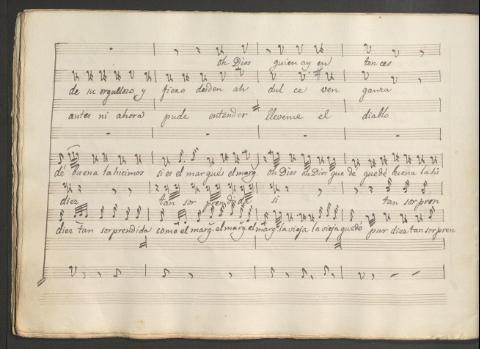 oh Dios quien ay en tonces
de su orgulloso y fiero desden ah dul ce ven ganza
antes ni ahora pude entender lleveme el diablo
de buena la hicimos si es el marques el marq. oh Dios oh Dios que de quede buena la hi
diez tan sor prendida si tan sorpren
diez tan sorprendida como el marq. el marq. el marq. la vieja la vieja quedo pur diez tan sorpren